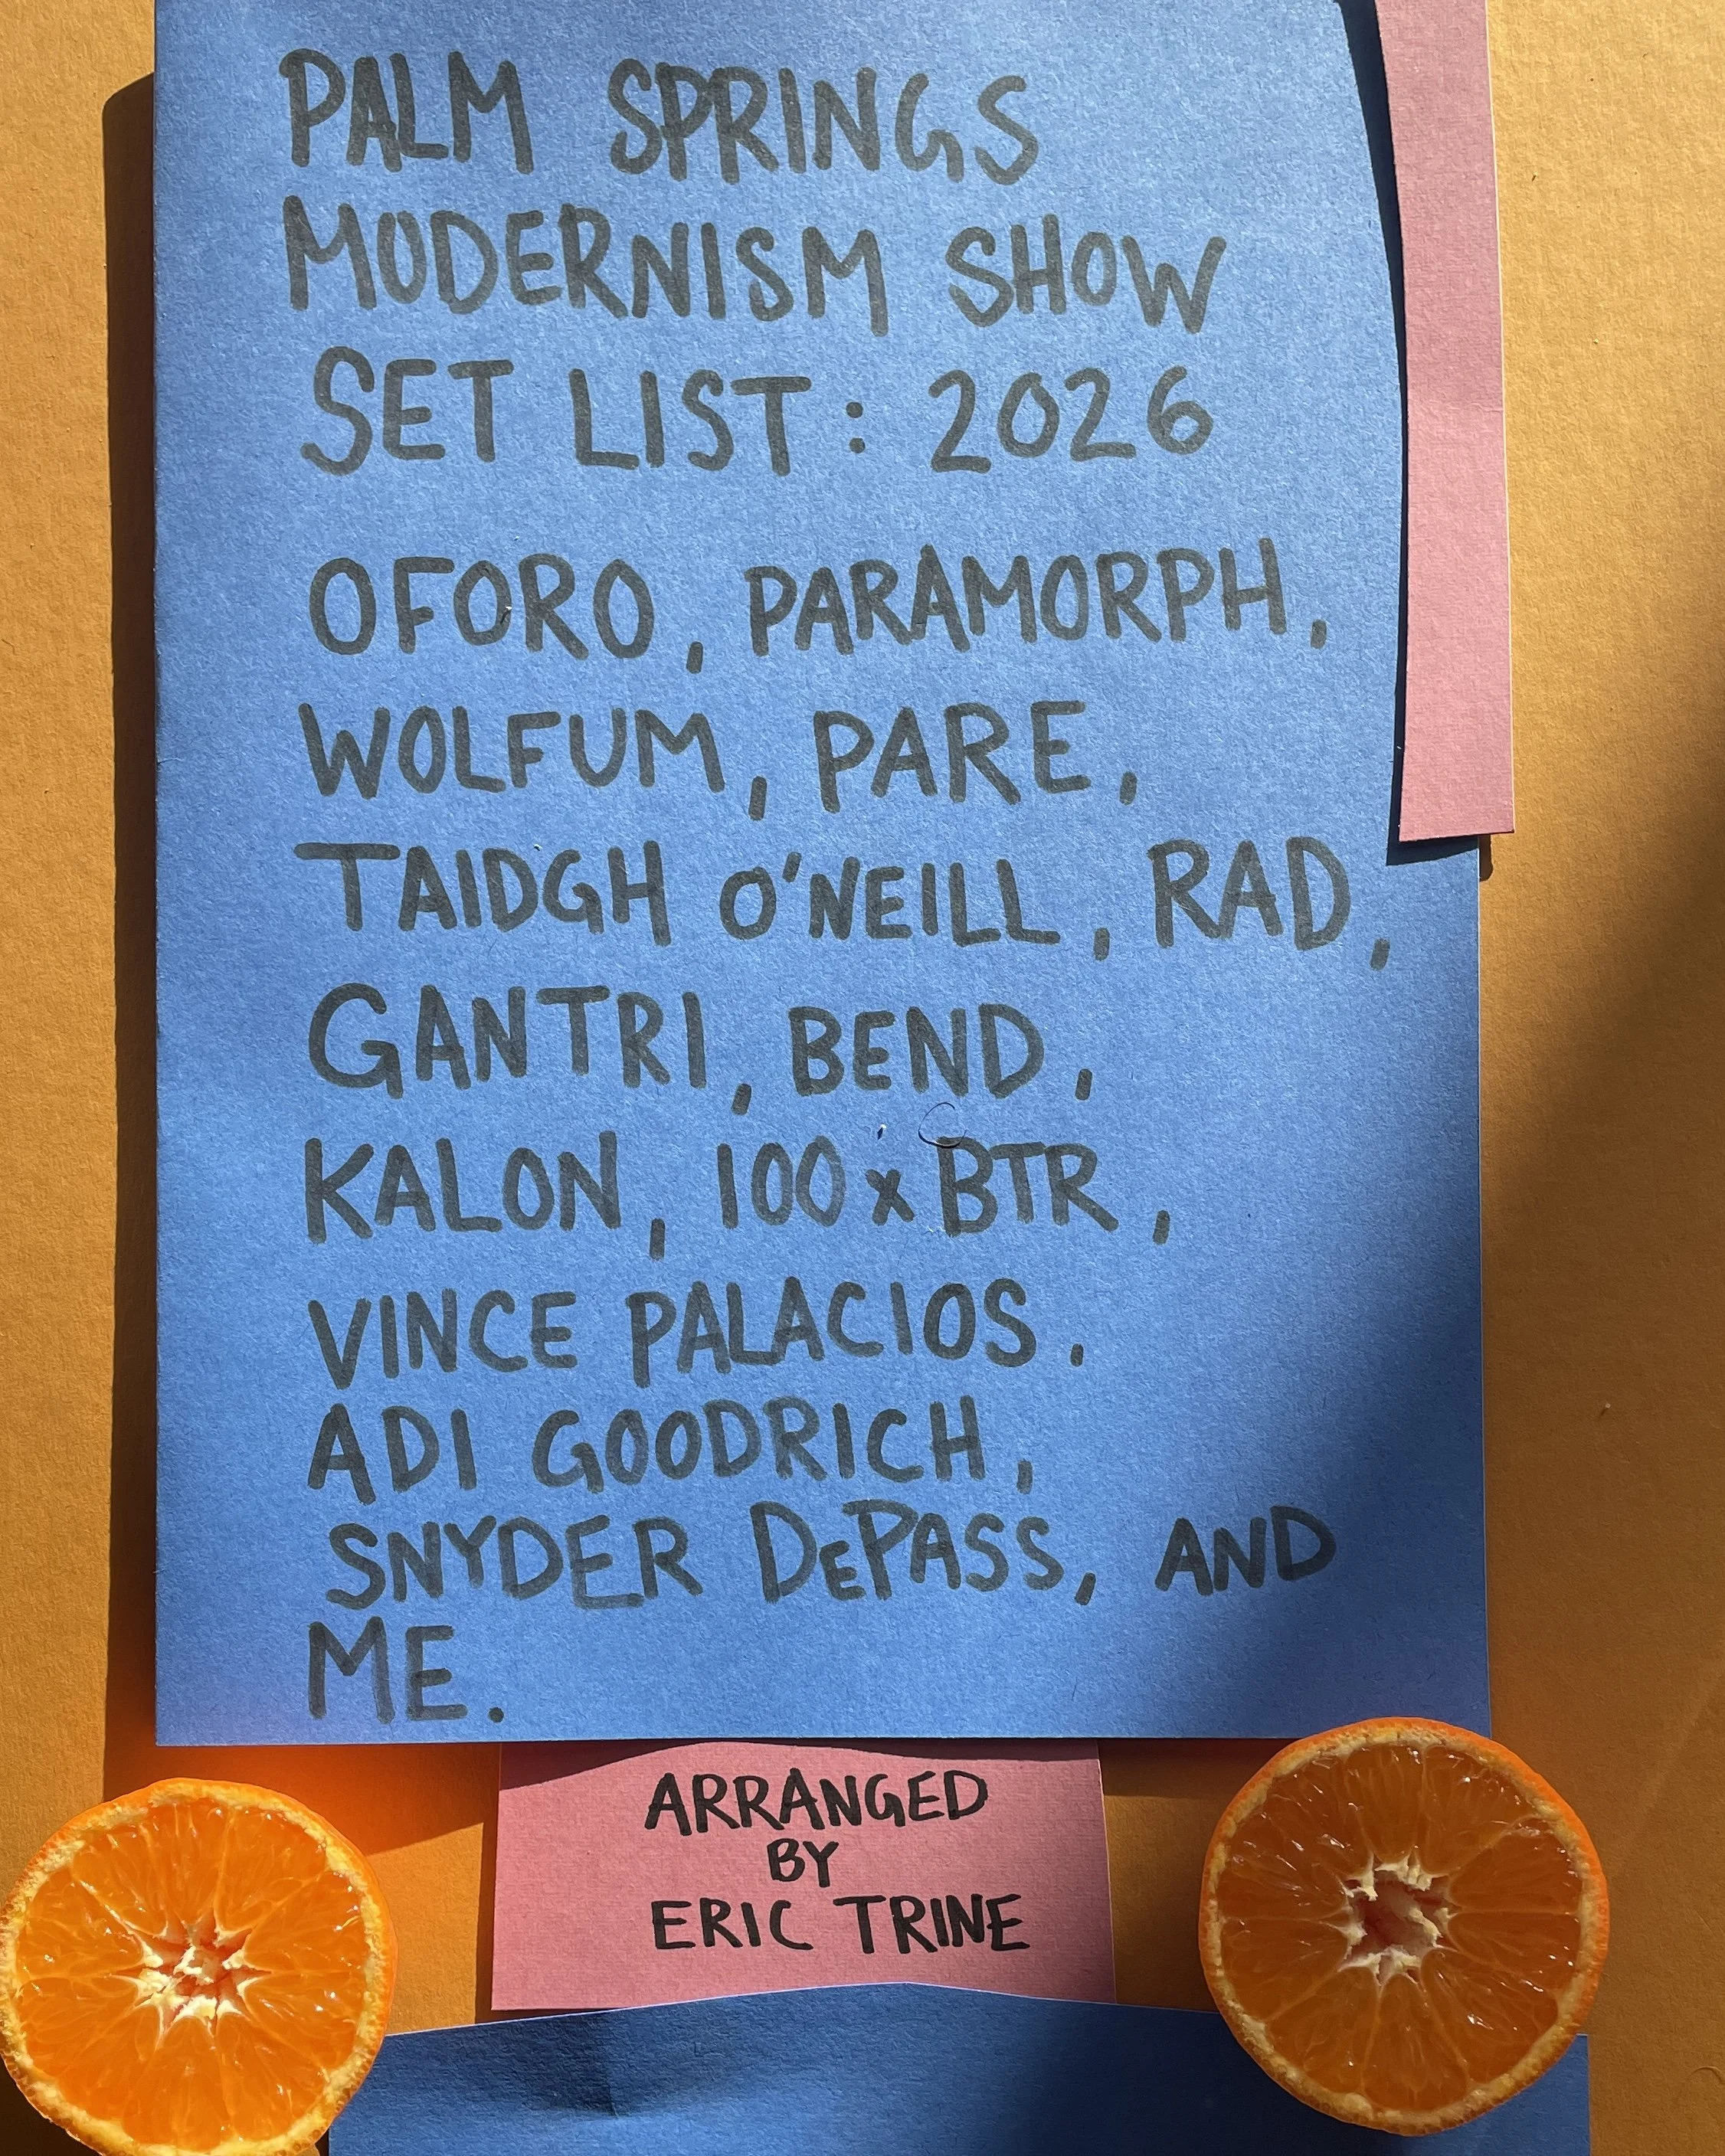 PALM SPRINGS
MODERNISM SHOW
SET LIST: 2026
OFORO, PARAMORPH,
WOLFUM, PARE,
TAIDGH O'NEILL, RAD,
GANTRI, BEND,
KALON, 100xBTR,
VINCE PALACIOS.
ADI GOODRICH,
SNYDER DePASS, AND
ME.
ARRANGED
BY
ERIC TRINE